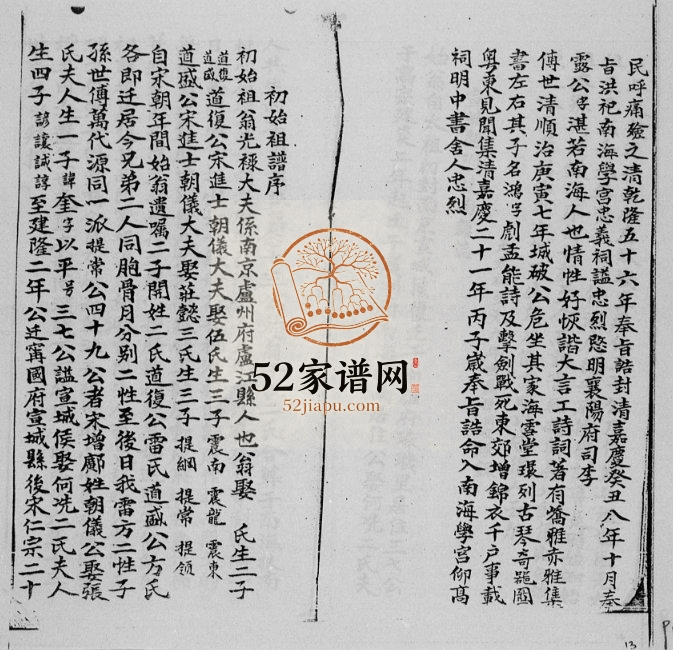 民呼痛殮之清乾隆五十六年奉旨誥封清嘉慶癸丑八年十月奉
旨洪祀南海學宮忠義祠謚忠烈愍明襄陽府司李
露公字湛若南海人也情性好恢諧大言工詩詞著有嶠雅赤雅集
傳世清順治庚寅七年城破公危坐其家海雪堂環列古琴奇器圖
書左右其子名鴻字劇孟能詩及擊劍戰死東郊增錦衣千戶事載
粵東見聞集清嘉慶二十一年丙子歲奉旨誥命入南海學宮仰高
祠明中書舍人忠烈
初始祖譜序
初始祖翁光祿大夫係南京盧州府盧江縣人也翁娶 氏生二子
道復 道盛 道復公宋進士朝儀大夫娶伍氏生三子 震南 震龍 震東
道盛公宋進士朝儀大夫娶莊懿三氏生三子 提綱 提常 提領
自宋朝年間始翁遺囑二子開姓二氏道復公雷氏道盛公方氏
各即迁居今兄弟二人同胞骨月分別二性至後日我雷方二性子
孫世傳萬代源同一派提常公四十九公者宋增鄺姓朝儀公娶張
氏夫人生一子諱奎字以平号三七公謚宣城侯娶何冼二氏夫人
生四子 諒 讓 誠 諄 至建隆二年公迁寧國府宣城縣後宋仁宗二十
52家谱网
52jiapu.com
13